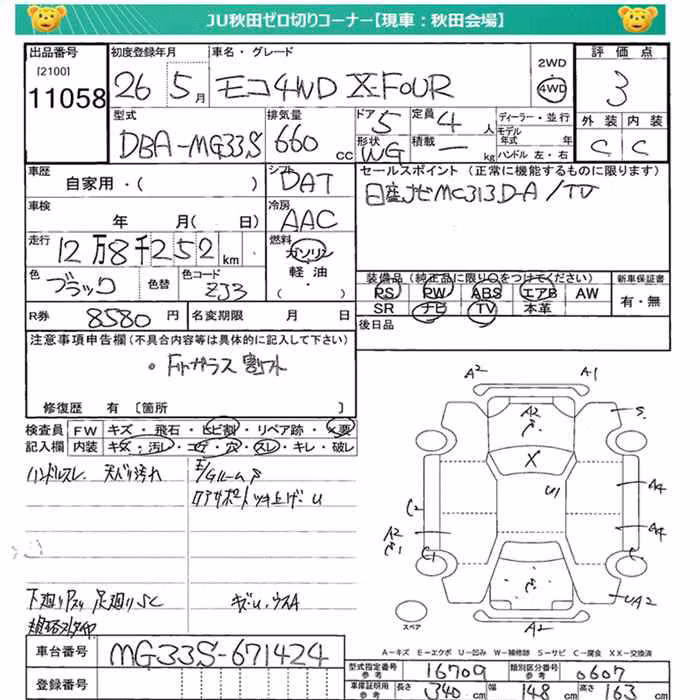 JU秋田ゼロ切りコーナー【現車：秋田会場】
出品番号 初度登録年月 車名・グレード 2WD 4WD 評価点
[2100]
11058 26 5月 モコ4WD X-FOUR 3
型式 排気量 ドア 定員 ディーラー・並行 外装 内装
DBA-MG33S 660cc 5 4人 モデル年式 年 C C
形状 積載 ハンドル 左・右
WG ー kg
車歴 シフト セールスポイント（正常に機能するものに限ります）
自家用・（ ） DAT 日産ナビMC313D-A/TV
車検 冷房
年 月（ 日） AAC
走行 燃料
12万8千252km ガソリン
軽油
・（ ）
色 色替 色コード 装備品（純正品に限り○をつけてください） 新車保証書
ブラック ZJ3 PS PW ABS エアB AW 有・無
SR ナビ TV 本革
R券 8580円 名変期限 月 日 後日品
注意事項申告欄（不具合内容等は具体的に記入して下さい）
・Fガラス
修復歴 有〔箇所 〕
検査員記入欄 FW キズ・飛石・ヒビ割・リペア跡・×要
内装 キズ・汚レ・コゲ・穴・スレ・キレ・破レ
ハンドルスレ 天バリ汚れ
コアサポートツキ上げU
下廻りP入り 足廻りSC キズU、ウスA
A2 A1
A2
S
X
U1
A4
C2
A2
A4
C1 C1
UA2
スペア A2
A－キズ E－エクボ U－凹み W－補修跡 S－サビ C－腐食 XX－交換済
車台番号 MG33S-671424
登録番号
型式指定番号 参考 16709 類別区分番号 参考 0607
車庫証明用 参考 長さ 340cm 幅 148cm 高さ 163cm